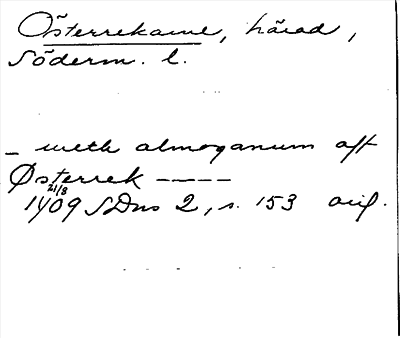 Österrekarne, härad,
Söderm. l.
– meth almoganum aff
Østerrek ----
21/8
1409 SDns 2, s. 153 orig.